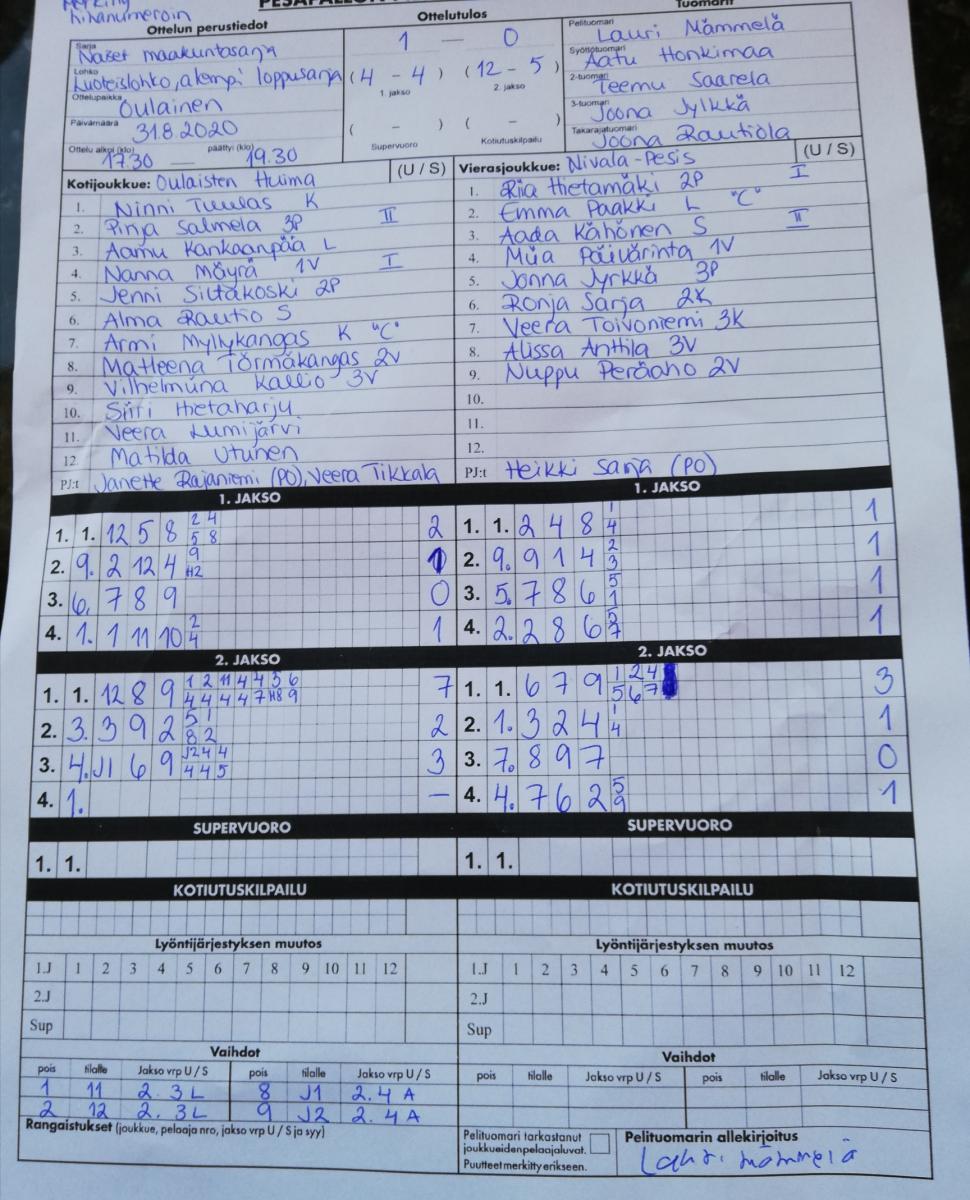 hihanumeroin
Ottelun perustiedot
Ottelutulos
Tuomarit
Sarja Naiset maakuntasarja
Lohko Luoteislohko, alempi loppusarja
Ottelupaikka Oulainen
Päivämäärä 31.8.2020
Ottelu alkoi (klo) 17.30 — päättyi (klo) 19.30
1 — 0
(4 - 4) (12 - 5)
1. jakso 2. jakso
( - ) ( - )
Supervuoro Kotiutuskilpailu
Pelituomari Lauri Mämmelä
Syöttötuomari Aatu Honkimaa
2-tuomari Teemu Saarela
3-tuomari Joona Jylkkä
Takarajatuomari Joona Rautiola
Kotijoukkue: Oulaisten Huima (U / S)
1. Ninni Tuulas K
2. Pinja Salmela 3P II
3. Aamu Kankaanpää L
4. Nanna Möyrä 1V I
5. Jenni Siltakoski 2P
6. Alma Rautio S
7. Armi Myllykangas K "C"
8. Matleena Törmäkangas 2V
9. Vilhelmiina Kallio 3V
10. Siiri Hietaharju
11. Veera Lumijärvi
12. Matilda Utunen
PJ:t Janette Rajaniemi (PO), Veera Tikkala
Vierasjoukkue: Nivala-Pesis (U / S)
1. Riia Hietamäki 2P I
2. Emma Paakki L "C"
3. Aada Kähönen S II
4. Miia Päivärinta 1V
5. Jonna Jyrkkä 3P
6. Ronja Sarja 2K
7. Veera Toivoniemi 3K
8. Alissa Anttila 3V
9. Nuppu Peräaho 2V
10.
11.
12.
PJ:t Heikki Sarja (PO)
1. JAKSO
1. 1. 12 5 8 2 4 5 8 2
2. 9. 2 12 4 9 H2 1
3. 6. 7 8 9 0
4. 1. 1 11 10 2 4 1
1. JAKSO
1. 1. 2 4 8 1 4 1
2. 9. 9 1 4 2 3 1
3. 5. 7 8 6 5 1 1
4. 2. 2 8 6 5 7 1
2. JAKSO
1. 1. 12 8 9 1 2 11 4 4 5 6 4 4 4 4 7 H8 9 7
2. 3. 3 9 2 5 1 8 2 2
3. 4. J1 6 9 J2 4 4 4 4 5 3
4. 1. —
2. JAKSO
1. 1. 6 7 9 1 2 4 5 6 7 3
2. 1. 3 2 4 1 4 1
3. 7. 8 9 7 0
4. 4. 7 6 2 5 9 1
SUPERVUORO
1. 1.
SUPERVUORO
1. 1.
KOTIUTUSKILPAILU
KOTIUTUSKILPAILU
Lyöntijärjestyksen muutos
1.J 1 2 3 4 5 6 7 8 9 10 11 12
2.J
Sup
Lyöntijärjestyksen muutos
1.J 1 2 3 4 5 6 7 8 9 10 11 12
2.J
Sup
Vaihdot
pois tilalle Jakso vrp U / S pois tilalle Jakso vrp U / S
1 11 2. 3 L 8 J1 2. 4 A
2 12 2. 3 L 9 J2 2. 4 A
Vaihdot
pois tilalle Jakso vrp U / S pois tilalle Jakso vrp U / S
Rangaistukset (joukkue, pelaaja nro, jakso vrp U / S ja syy)
Pelituomari tarkastanut
joukkueidenpelaajaluvat.
Puutteet merkitty erikseen.
Pelituomarin allekirjoitus
Lauri Mämmelä